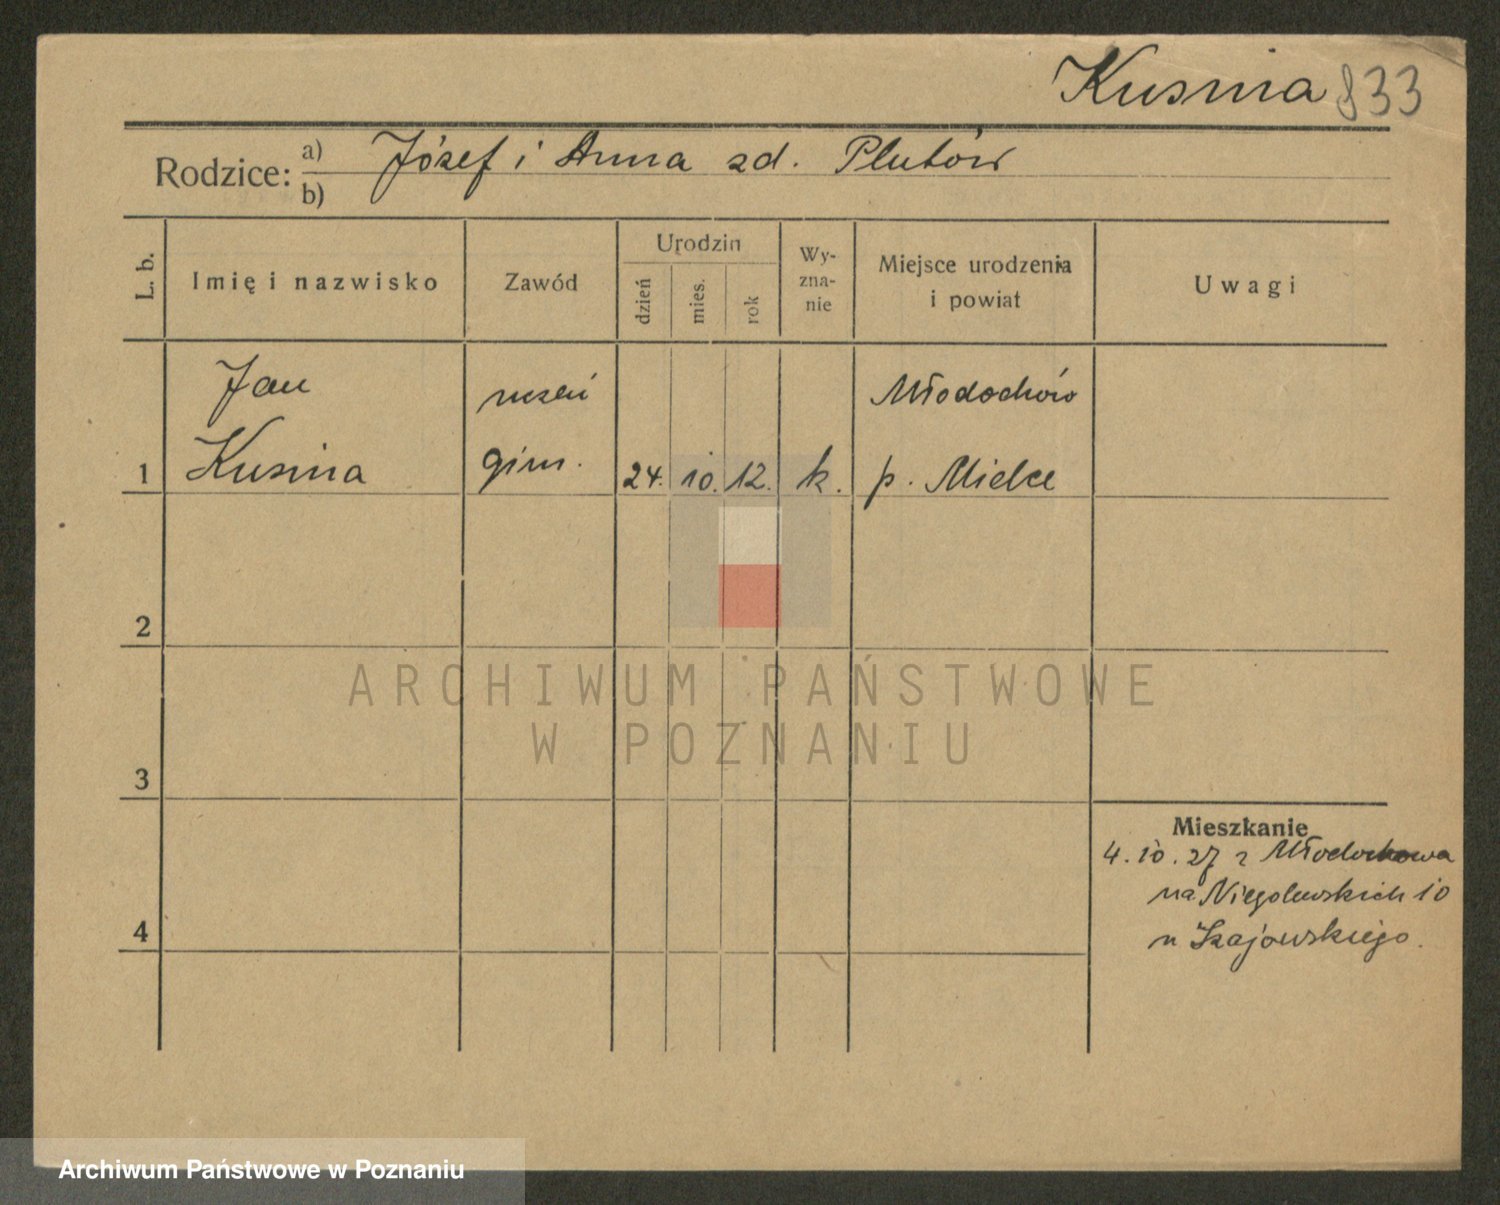 Kusnia 833
Rodzice: a) Józef i Anna zd. Plutów
b)
L. b.
Imię i nazwisko
Zawód
Urodzin
dzień
mies.
rok
Wy-
zna-
nie
Miejsce urodzenia
i powiat
Uwagi
Jan uczeń Młodochów
1 Kusnia gim. 24. 10. 12. k. p. Mielce
2
ARCHIWUM PAŃSTWOWE
W POZNANIU
3
Mieszkanie
4. 10. 27 z Młodochowa
na Niegolewskich 10
u
4
Archiwum Państwowe w Poznaniu